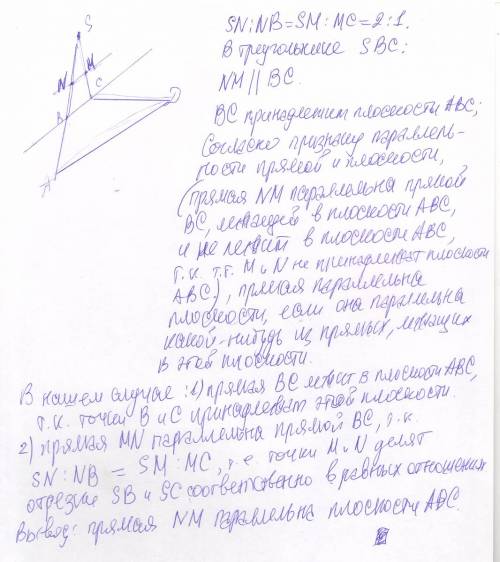 S
N
M
C
B
D
A
SN:NB=SM:MC=2:1.
В треугольнике SBC:
NM || BC.
BC принадлежит плоскости ABC;
Согласно признаку параллель-
ности прямой и плоскости,
(прямая NM параллельна прямой
BC, лежащей в плоскости ABC,
и не лежит в плоскости ABC,
т.к. т.т. M и N не принадлежат плоскости
ABC), прямая параллельна
плоскости, если она параллельна
какой-нибудь из прямых, лежащих
в этой плоскости.
В нашем случае: 1) прямая BC лежит в плоскости ABC,
т.к. точки B и C принадлежат этой плоскости.
2) прямая MN параллельна прямой BC, т.к.
SN:NB = SM:MC, т.е. точки M и N делят
отрезки SB и SC соответственно в равных отношениях
Вывод: прямая NM параллельна плоскости ABC.